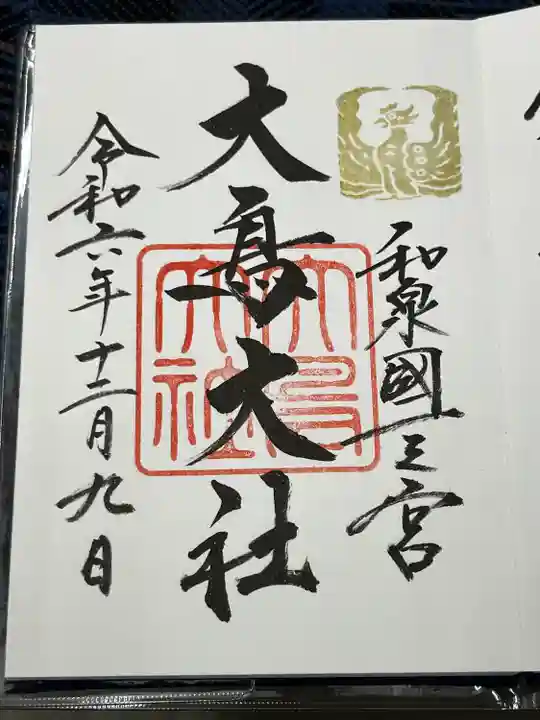 和泉國一之宮
大鳥大社
大鳥大社
令和六年十二月九日